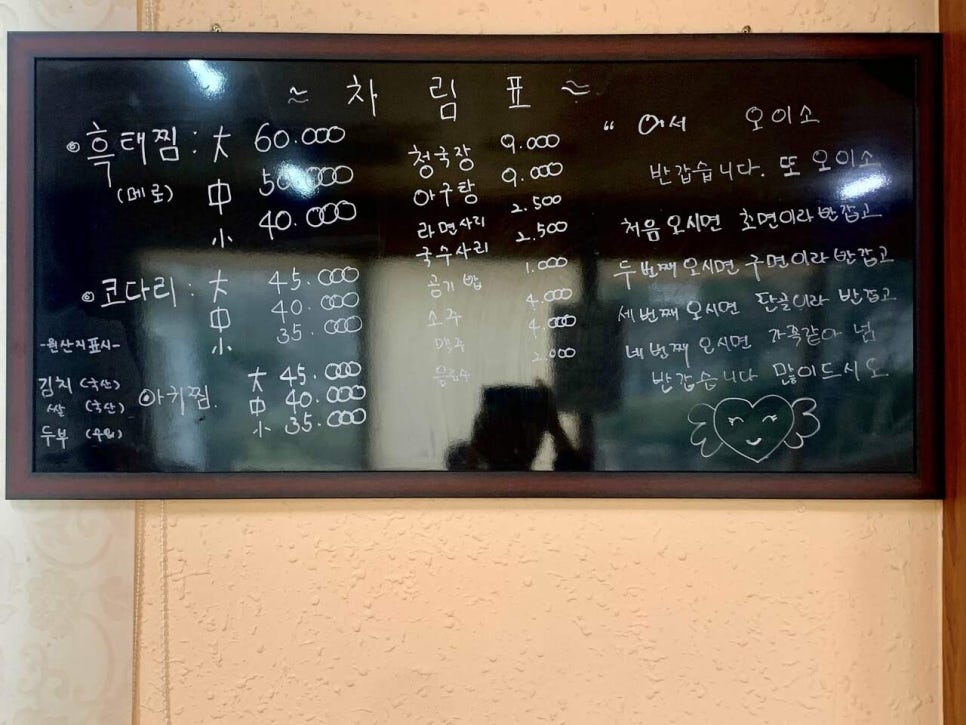 ≈ 차 림 표 ≈
◉ 흑태찜 : 大 60.000
(메로) 中 50.000
小 40.000
◉ 코다리 : 大 45.000
中 40.000
小 35.000
-원산지표시-
김치 (국산)
쌀 (국산)
두부 (수입)
◉아귀찜. 大 45.000
中 40.000
小 35.000
청국장 9.000
아구탕 9.000
라면사리 2.500
국수사리 2.500
공기 밥 1.000
소주 4.000
맥주 4.000
음료수 2.000
“ 어서 오이소
반갑습니다. 또 오이소
처음 오시면 초면이라 반갑고
두번째 오시면 구면이라 반갑고
세번째 오시면 단골이라 반갑고
네번째 오시면 가족같아 넘
반갑습니다 많이드시오